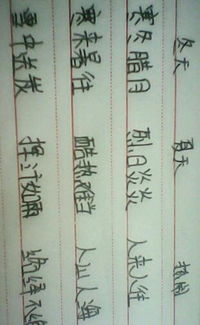 冬天 夏天 热闹
寒冬腊月 烈日炎炎 人来人往
寒来暑往 酷热难当 人山人海
雪中送炭 挥汗如雨 络绎不绝